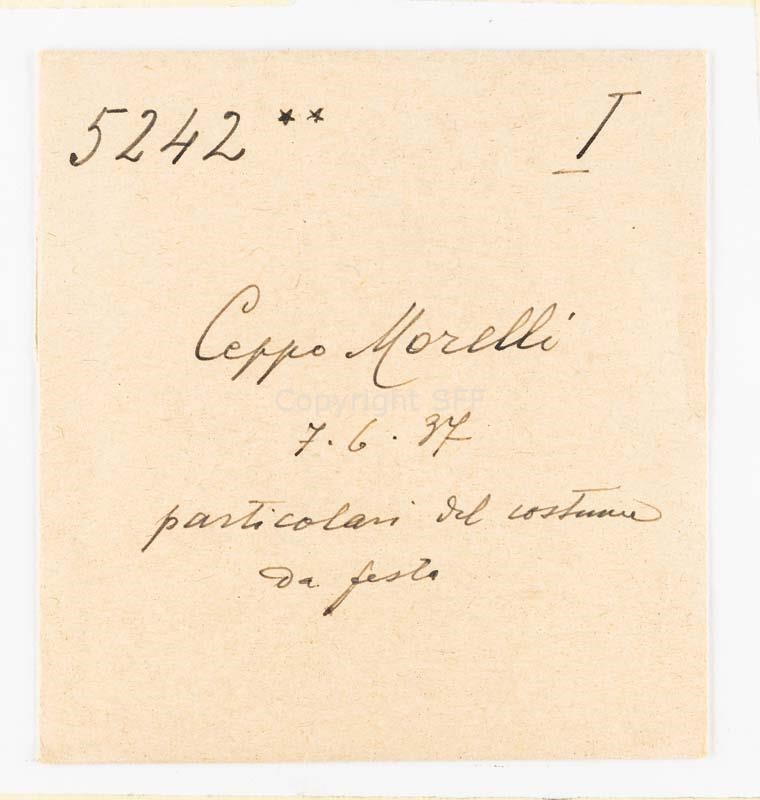 5242 ** I
Ceppo Morelli
Copyright SFF
7.6.37
particolari del costume
da festa